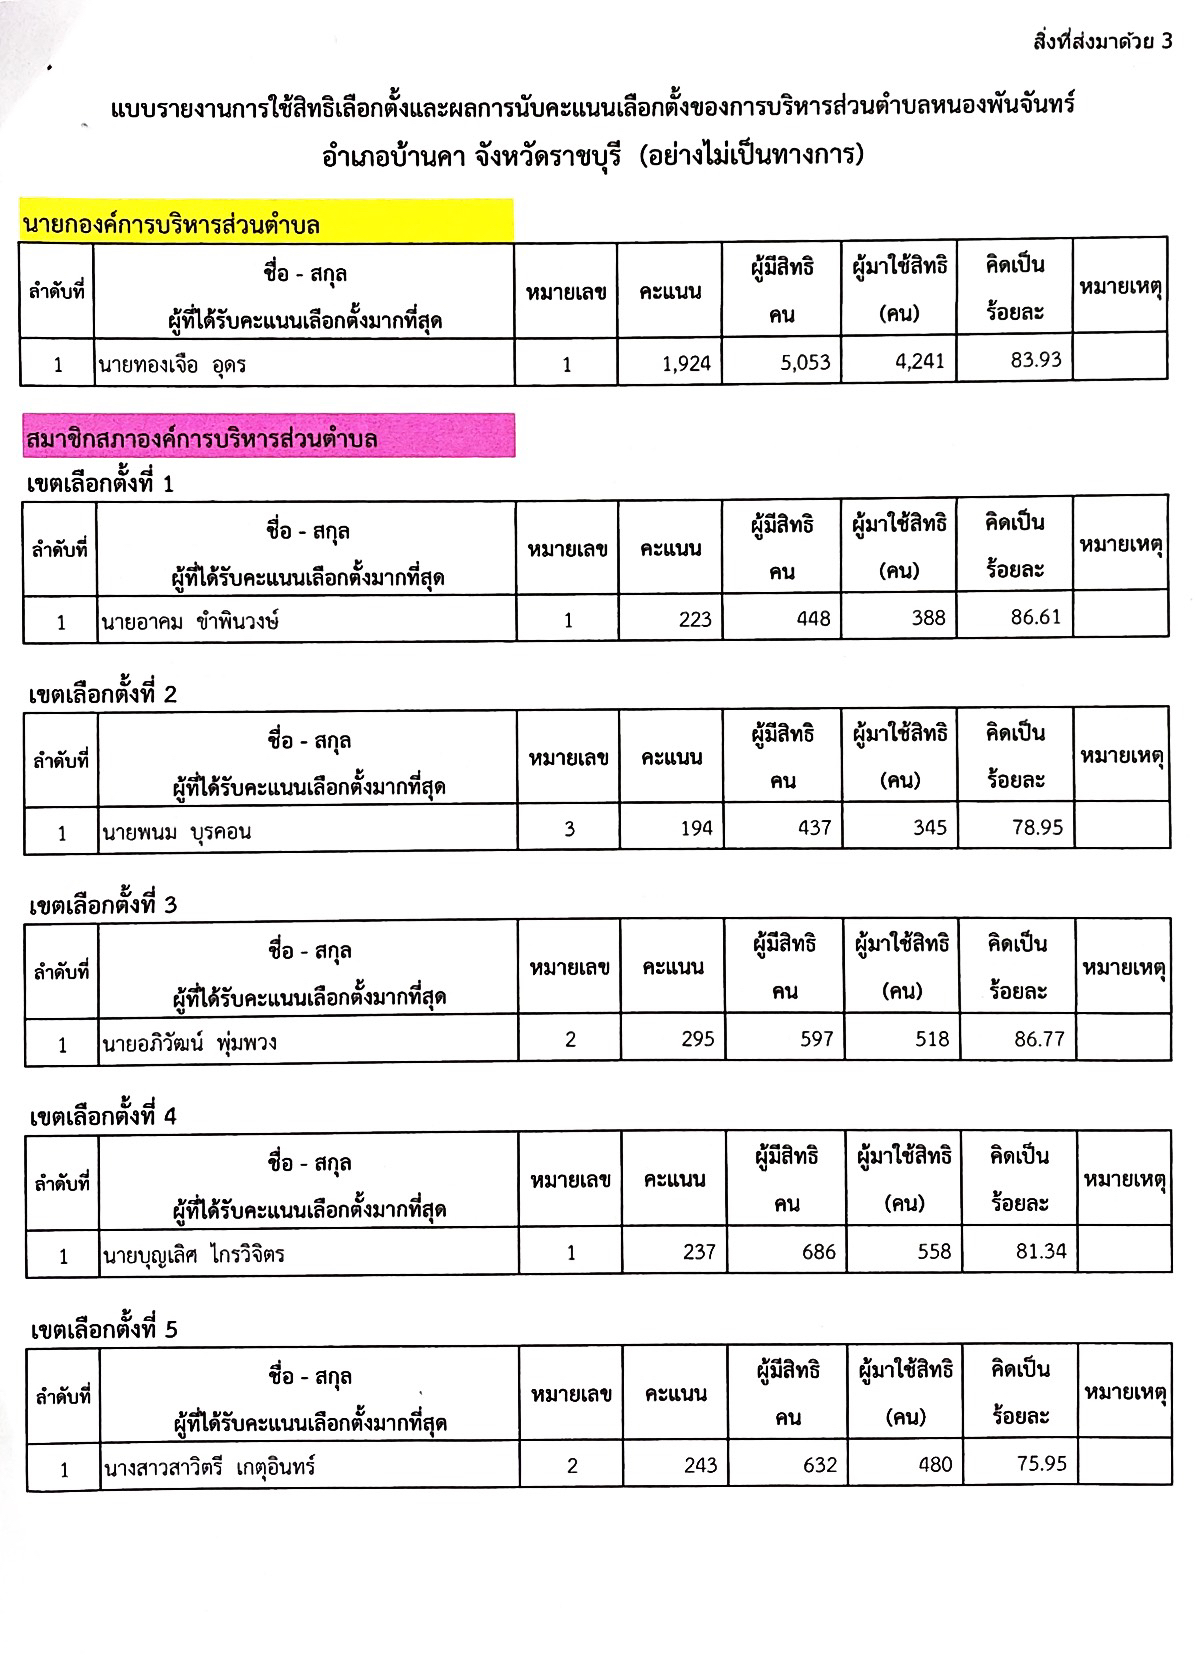 สิ่งที่ส่งมาด้วย 3
แบบรายงานการใช้สิทธิเลือกตั้งและผลการนับคะแนนเลือกตั้งของการบริหารส่วนตำบลหนองพันจันทร์
อำเภอบ้านคา จังหวัดราชบุรี (อย่างไม่เป็นทางการ)
นายกองค์การบริหารส่วนตำบล
ลำดับที่ ชื่อ - สกุล ผู้ที่ได้รับคะแนนเลือกตั้งมากที่สุด หมายเลข คะแนน ผู้มีสิทธิ คน ผู้มาใช้สิทธิ (คน) คิดเป็น ร้อยละ หมายเหตุ
1 นายทองเจือ อุดร 1 1,924 5,053 4,241 83.93
สมาชิกสภาองค์การบริหารส่วนตำบล
เขตเลือกตั้งที่ 1
ลำดับที่ ชื่อ - สกุล ผู้ที่ได้รับคะแนนเลือกตั้งมากที่สุด หมายเลข คะแนน ผู้มีสิทธิ คน ผู้มาใช้สิทธิ (คน) คิดเป็น ร้อยละ หมายเหตุ
1 นายอาคม ขำพินวงษ์ 1 223 448 388 86.61
เขตเลือกตั้งที่ 2
ลำดับที่ ชื่อ - สกุล ผู้ที่ได้รับคะแนนเลือกตั้งมากที่สุด หมายเลข คะแนน ผู้มีสิทธิ คน ผู้มาใช้สิทธิ (คน) คิดเป็น ร้อยละ หมายเหตุ
1 นายพนม บุรคอน 3 194 437 345 78.95
เขตเลือกตั้งที่ 3
ลำดับที่ ชื่อ - สกุล ผู้ที่ได้รับคะแนนเลือกตั้งมากที่สุด หมายเลข คะแนน ผู้มีสิทธิ คน ผู้มาใช้สิทธิ (คน) คิดเป็น ร้อยละ หมายเหตุ
1 นายอภิวัฒน์ พุ่มพวง 2 295 597 518 86.77
เขตเลือกตั้งที่ 4
ลำดับที่ ชื่อ - สกุล ผู้ที่ได้รับคะแนนเลือกตั้งมากที่สุด หมายเลข คะแนน ผู้มีสิทธิ คน ผู้มาใช้สิทธิ (คน) คิดเป็น ร้อยละ หมายเหตุ
1 นายบุญเลิศ ไกรวิจิตร 1 237 686 558 81.34
เขตเลือกตั้งที่ 5
ลำดับที่ ชื่อ - สกุล ผู้ที่ได้รับคะแนนเลือกตั้งมากที่สุด หมายเลข คะแนน ผู้มีสิทธิ คน ผู้มาใช้สิทธิ (คน) คิดเป็น ร้อยละ หมายเหตุ
1 นางสาวสาวิตรี เกตุอินทร์ 2 243 632 480 75.95